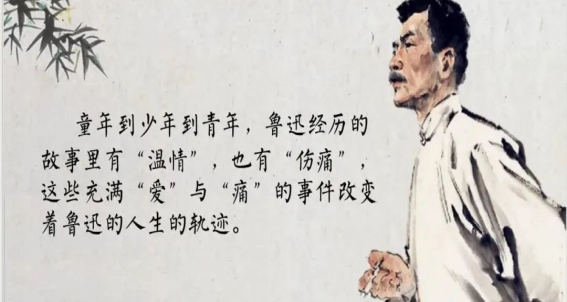 童年到少年到青年，鲁迅经历的
故事里有“温情”，也有“伤痛”，
这些充满“爱”与“痛”的事件改变
着鲁迅的人生的轨迹。